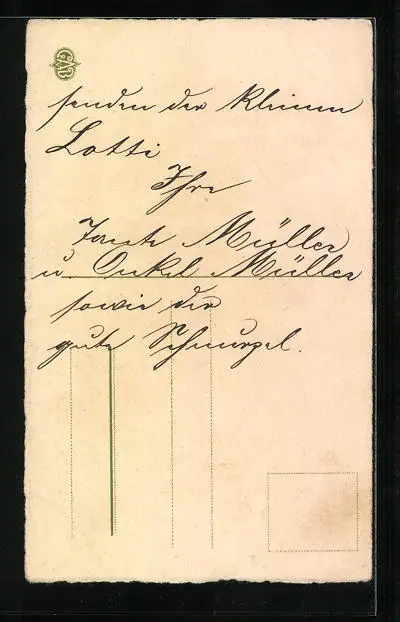 senden der kleinen
Lotti
Ihre
Tante Müller
u Onkel Müller
sowie der
gute Schnurzel.